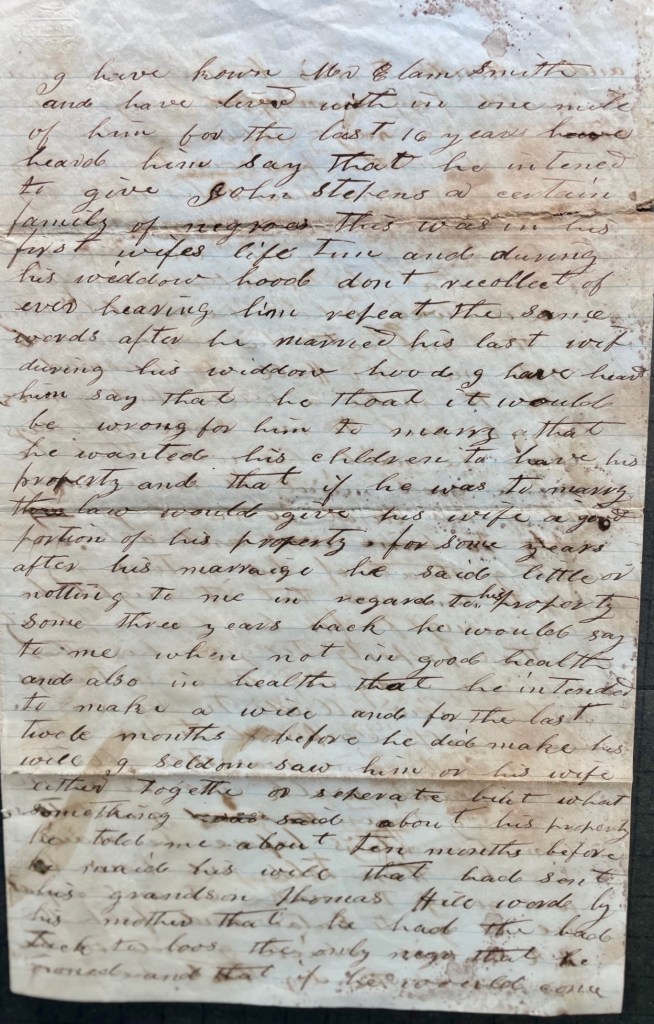 I have kown Mr Elam Smith
and have lived with in one mile
of him for the last 16 years have
heard him say that he intened
to give John Stepens a certain
family of negroes this was in his
first wifes life tim and during
his weddow hood dont recollect of
ever hearing him repeat the same
words after he married his last wif
during his widdow hood I have heard
him say that he thoat it would
be wrong for him to marry that
he wanted his children to have his
property and that if he was to marry
law would give his wife a good
portion of his property for some years
after his marraige he said little or
notting to me in regard to his property
some three years back he would say
to me when not in good health
and also in health that he intended
to make a will and for the last
twele months before he did make his
will I seldom saw him or his wife
either togethe or seperate but what
something was said about his property
he told me about ten months before
he maid his will that had sent
his grandson Thomas Hill word by
his mother that he had the bad
luck to loos the only negro that he
owned and that if he would come